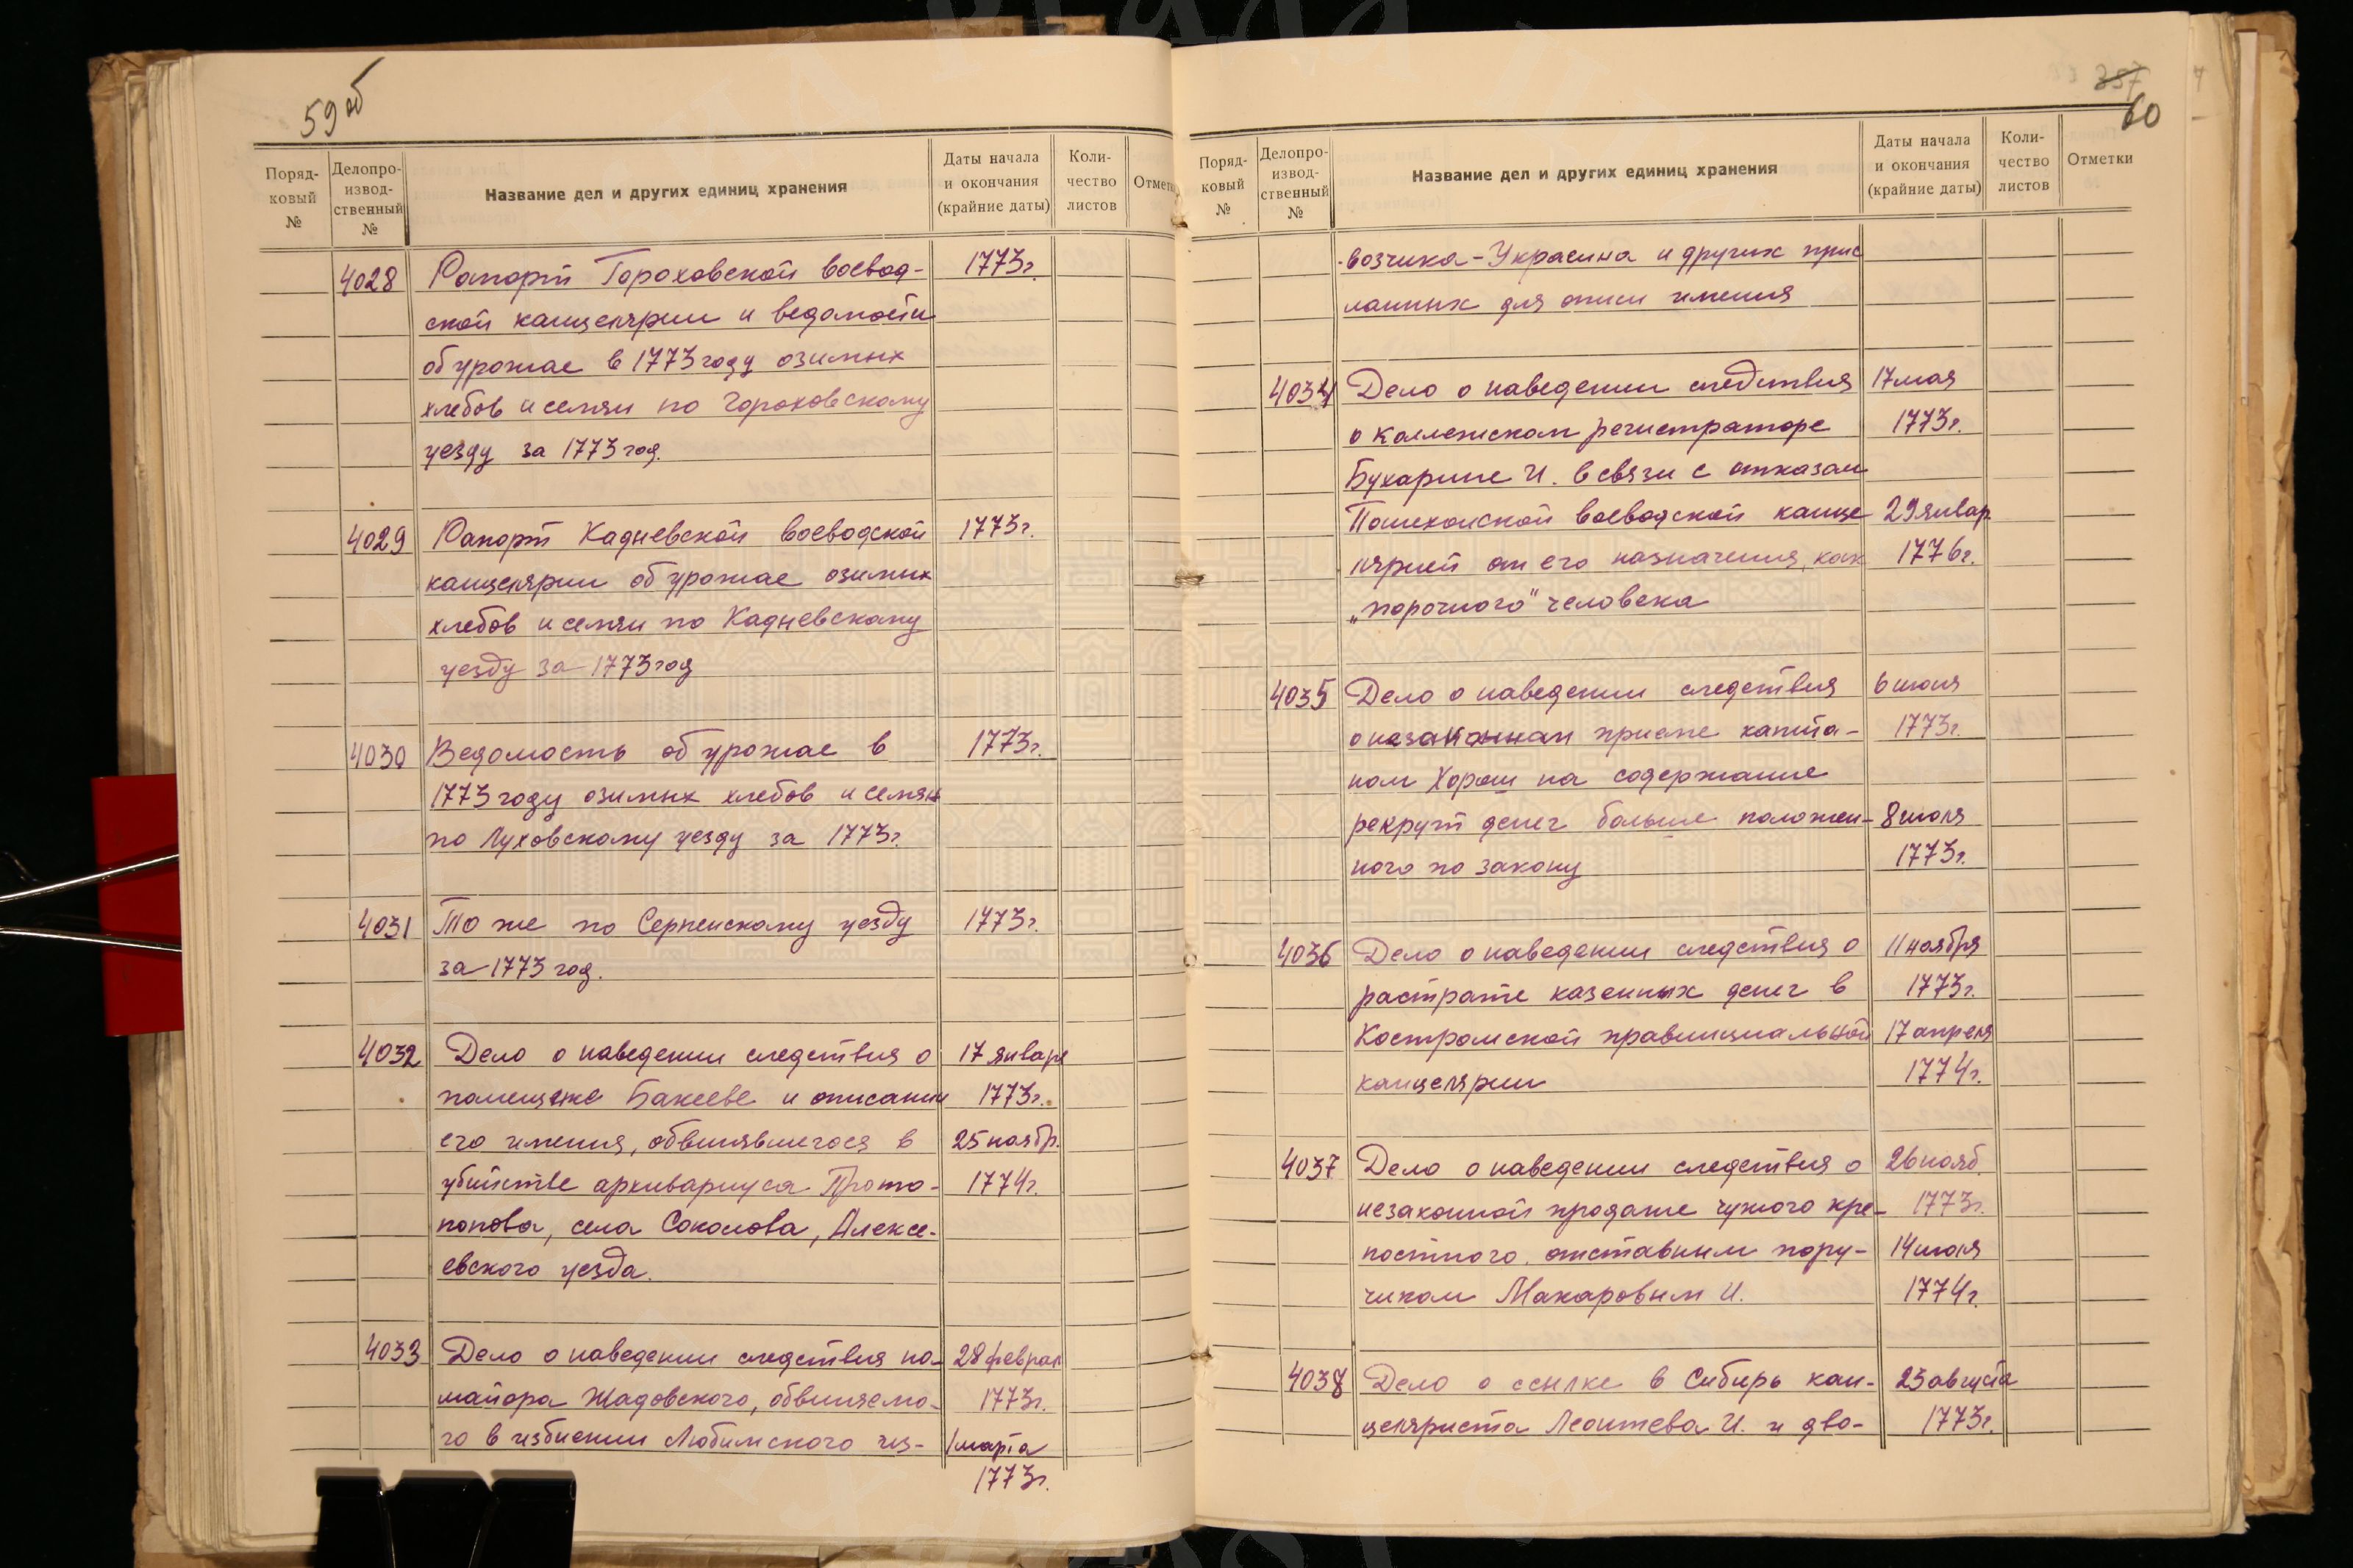 59 об
Поряд-
ковый
№
Делопро-
извод-
ственный
№
Название дел и других единиц хранения
Даты начала
и окончания
(крайние даты)
Коли-
чество
листов
Отметк
4028 Рапорт Гороховской воевод- 1773г.
ской канцелярии и ведомости
об урожае в 1773 году озимых
хлебов и семян по Гороховскому
уезду за 1773 год.
4029 Рапорт Кадневской воеводской 1773г.
канцелярии об урожае озимых
хлебов и семян по Кадневскому
уезду за 1773 год
4030 Ведомость об урожае в 1773г.
1773 году озимых хлебов и семян
по Луховскому уезду за 1773г.
4031 То же по Серпейскому уезду 1773г.
за 1773 год.
4032 Дело о наведении следствия о 17 января
помещике Бакееве и описании 1773г.
его имения, обвинявшегося в 25 ноябр.
убийстве архивариуса Прото- 1774г.
попова, села Соколова, Алексе-
евского уезда.
4033 Дело о наведении следствия на- 28 феврал
майора Жадовского, обвиняемо- 1773г.
го в избиении Любимского из- 1 марта
1773г.
357
60
Поряд-
ковый
№
Делопро-
извод-
ственный
№
Название дел и других единиц хранения
Даты начала
и окончания
(крайние даты)
Коли-
чество
листов
Отметки
возчика-Украсина и других прис
ланных для описи имения
4034 Дело о наведении следствия 17 мая
о коллежском регистраторе 1773г.
Бухарине И. в связи с отказом
Пошехонской воеводской канце 29 январ
лярией от его назначения, как 1776г.
„порочного" человека
4035 Дело о наведении следствия 6 июня
о незаконном приеме капита- 1773г.
ном Хорош на содержание
рекрут денег больше положен- 8 июля
ного по закону 1773г.
4036 Дело о наведении следствия о 11 ноября
растрате казенных денег в 1773г.
Костромской правинциальной 17 апреля
канцелярии 1774г.
4037 Дело о наведении следствия о 26 нояб.
незаконной продаже чужого кре- 1773г.
постного отставным пору- 14 июля
чиком Макаровым И. 1774г.
4038 Дело о ссылке в Сибирь кан- 23 августа
целяриста Леонтева И. и дво- 1773г.